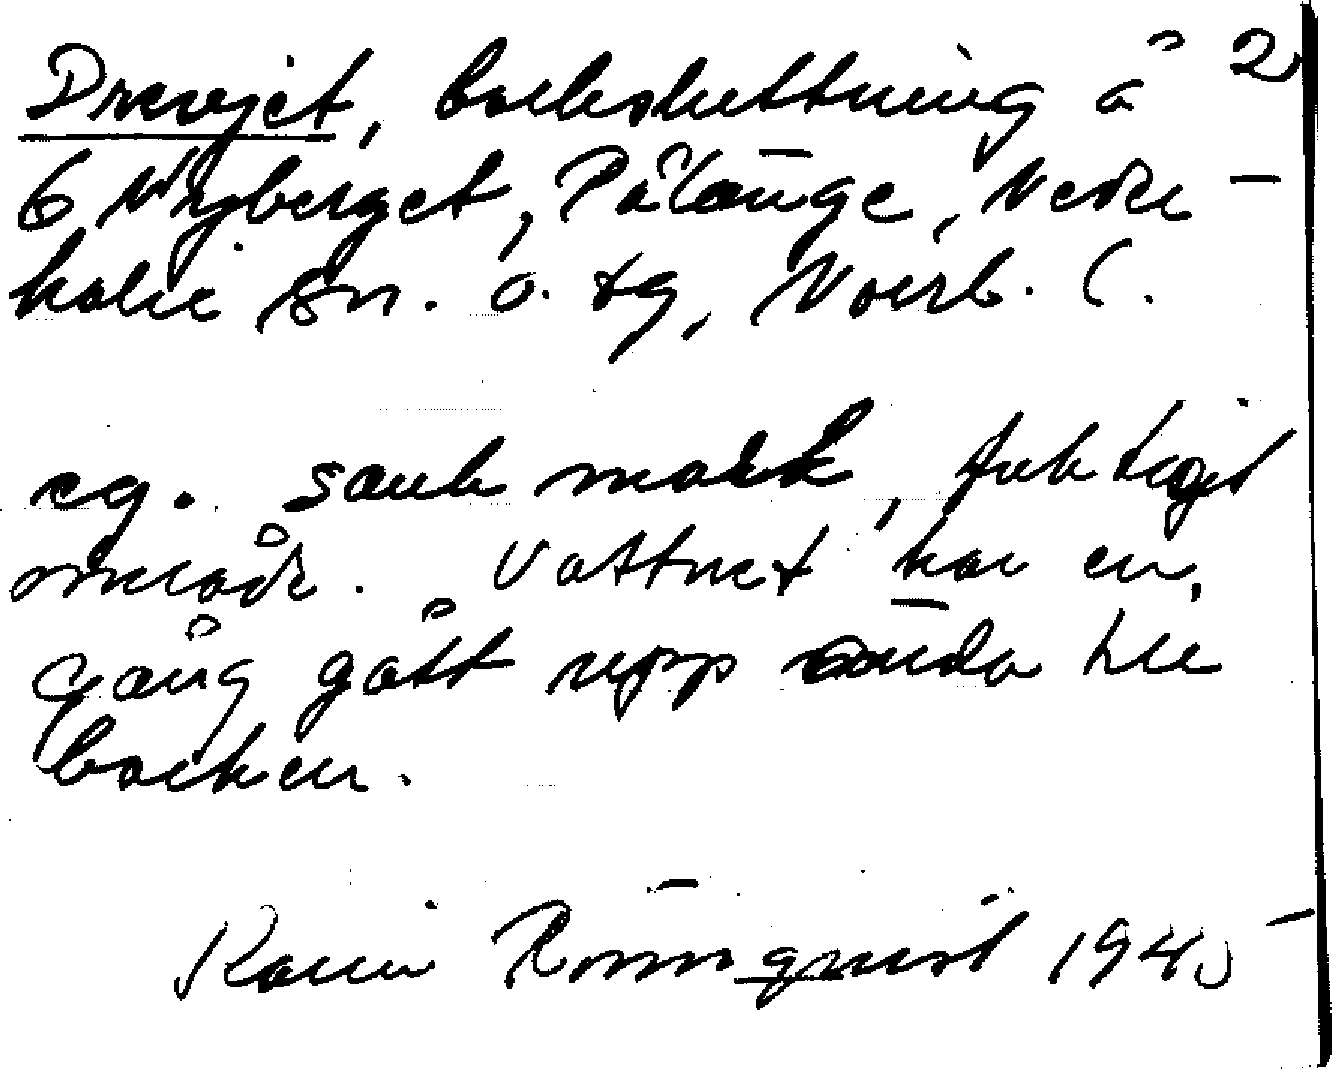 Drevjet, backsluttning å 2
6 Nyberget, Pålänge, Neder-
kalix sn. o. tg, Norrb. l.
eg. sank mark, fuktigt
område. Vattnet har en
gång gått upp ända till
backen.
Karin Rönnqvist 1945